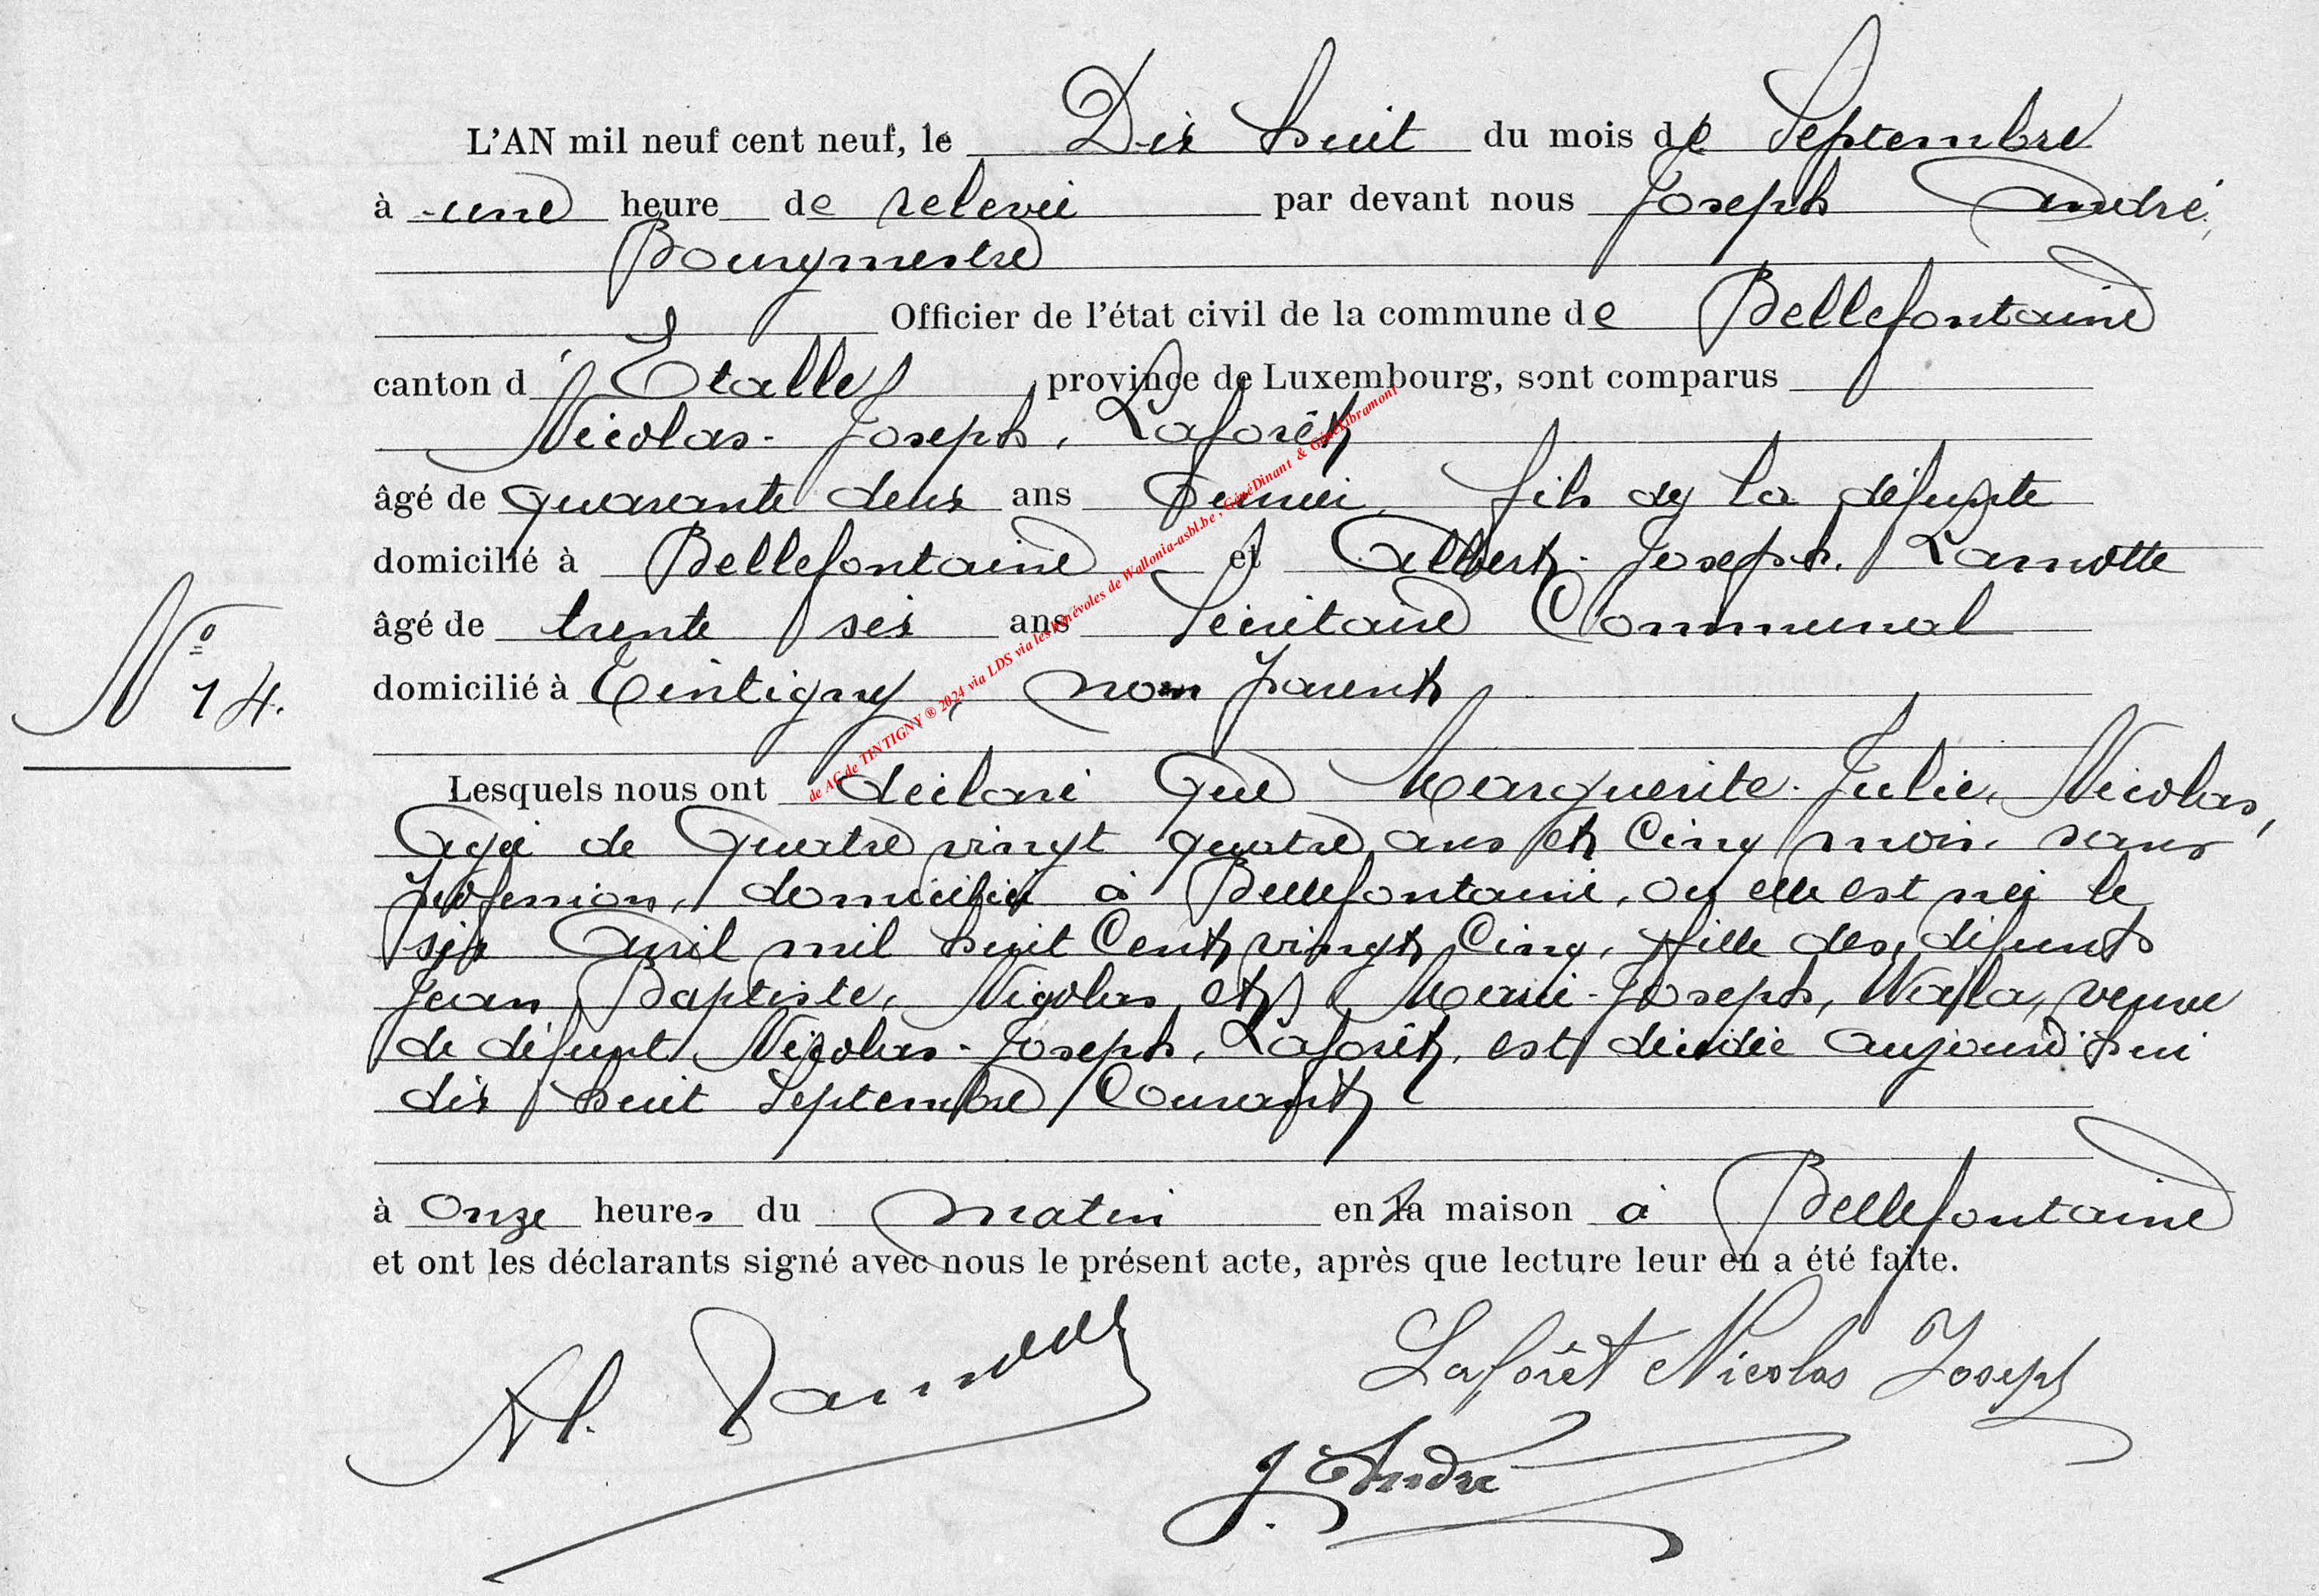 L'AN mil neuf cent neuf, le Dix huit du mois de Septembre
à une heure de relevée par devant nous Joseph André,
Bourgmestre
Officier de l'état civil de la commune de Bellefontaine
canton d'Étalle, province de Luxembourg, sont comparus
Nicolas-Joseph, Laforêt
âgé de quarante deux ans fils de la défunte
domicilié à Bellefontaine et Albert-Joseph, Lamotte
âgé de trente six ans Secrétaire Communal
N° 14.
domicilié à Tintigny, non parents
Lesquels nous ont déclaré que Marguerite-Julie, Nicolas,
âgée de quatre vingt quatre ans et cinq mois, sans
profession, domiciliée à Bellefontaine, où elle est née le
six Avril mil huit cent vingt cinq, fille des défunts
Jean Baptiste, Nicolas, et Marie-Joseph, veuve
de défunt Nicolas-Joseph, Laforêt, est décédée aujourd'hui
dix huit Septembre Courant
à Onze heures du matin en sa maison à Bellefontaine
et ont les déclarants signé avec nous le présent acte, après que lecture leur en a été faite.
Al. Lamotte
Laforêt Nicolas Joseph
J. André
de AC de TINTIGNY ® 2024 via LDS via les bénévoles de Wallonia-asbl.be, GénéDinant & GénéLibramont